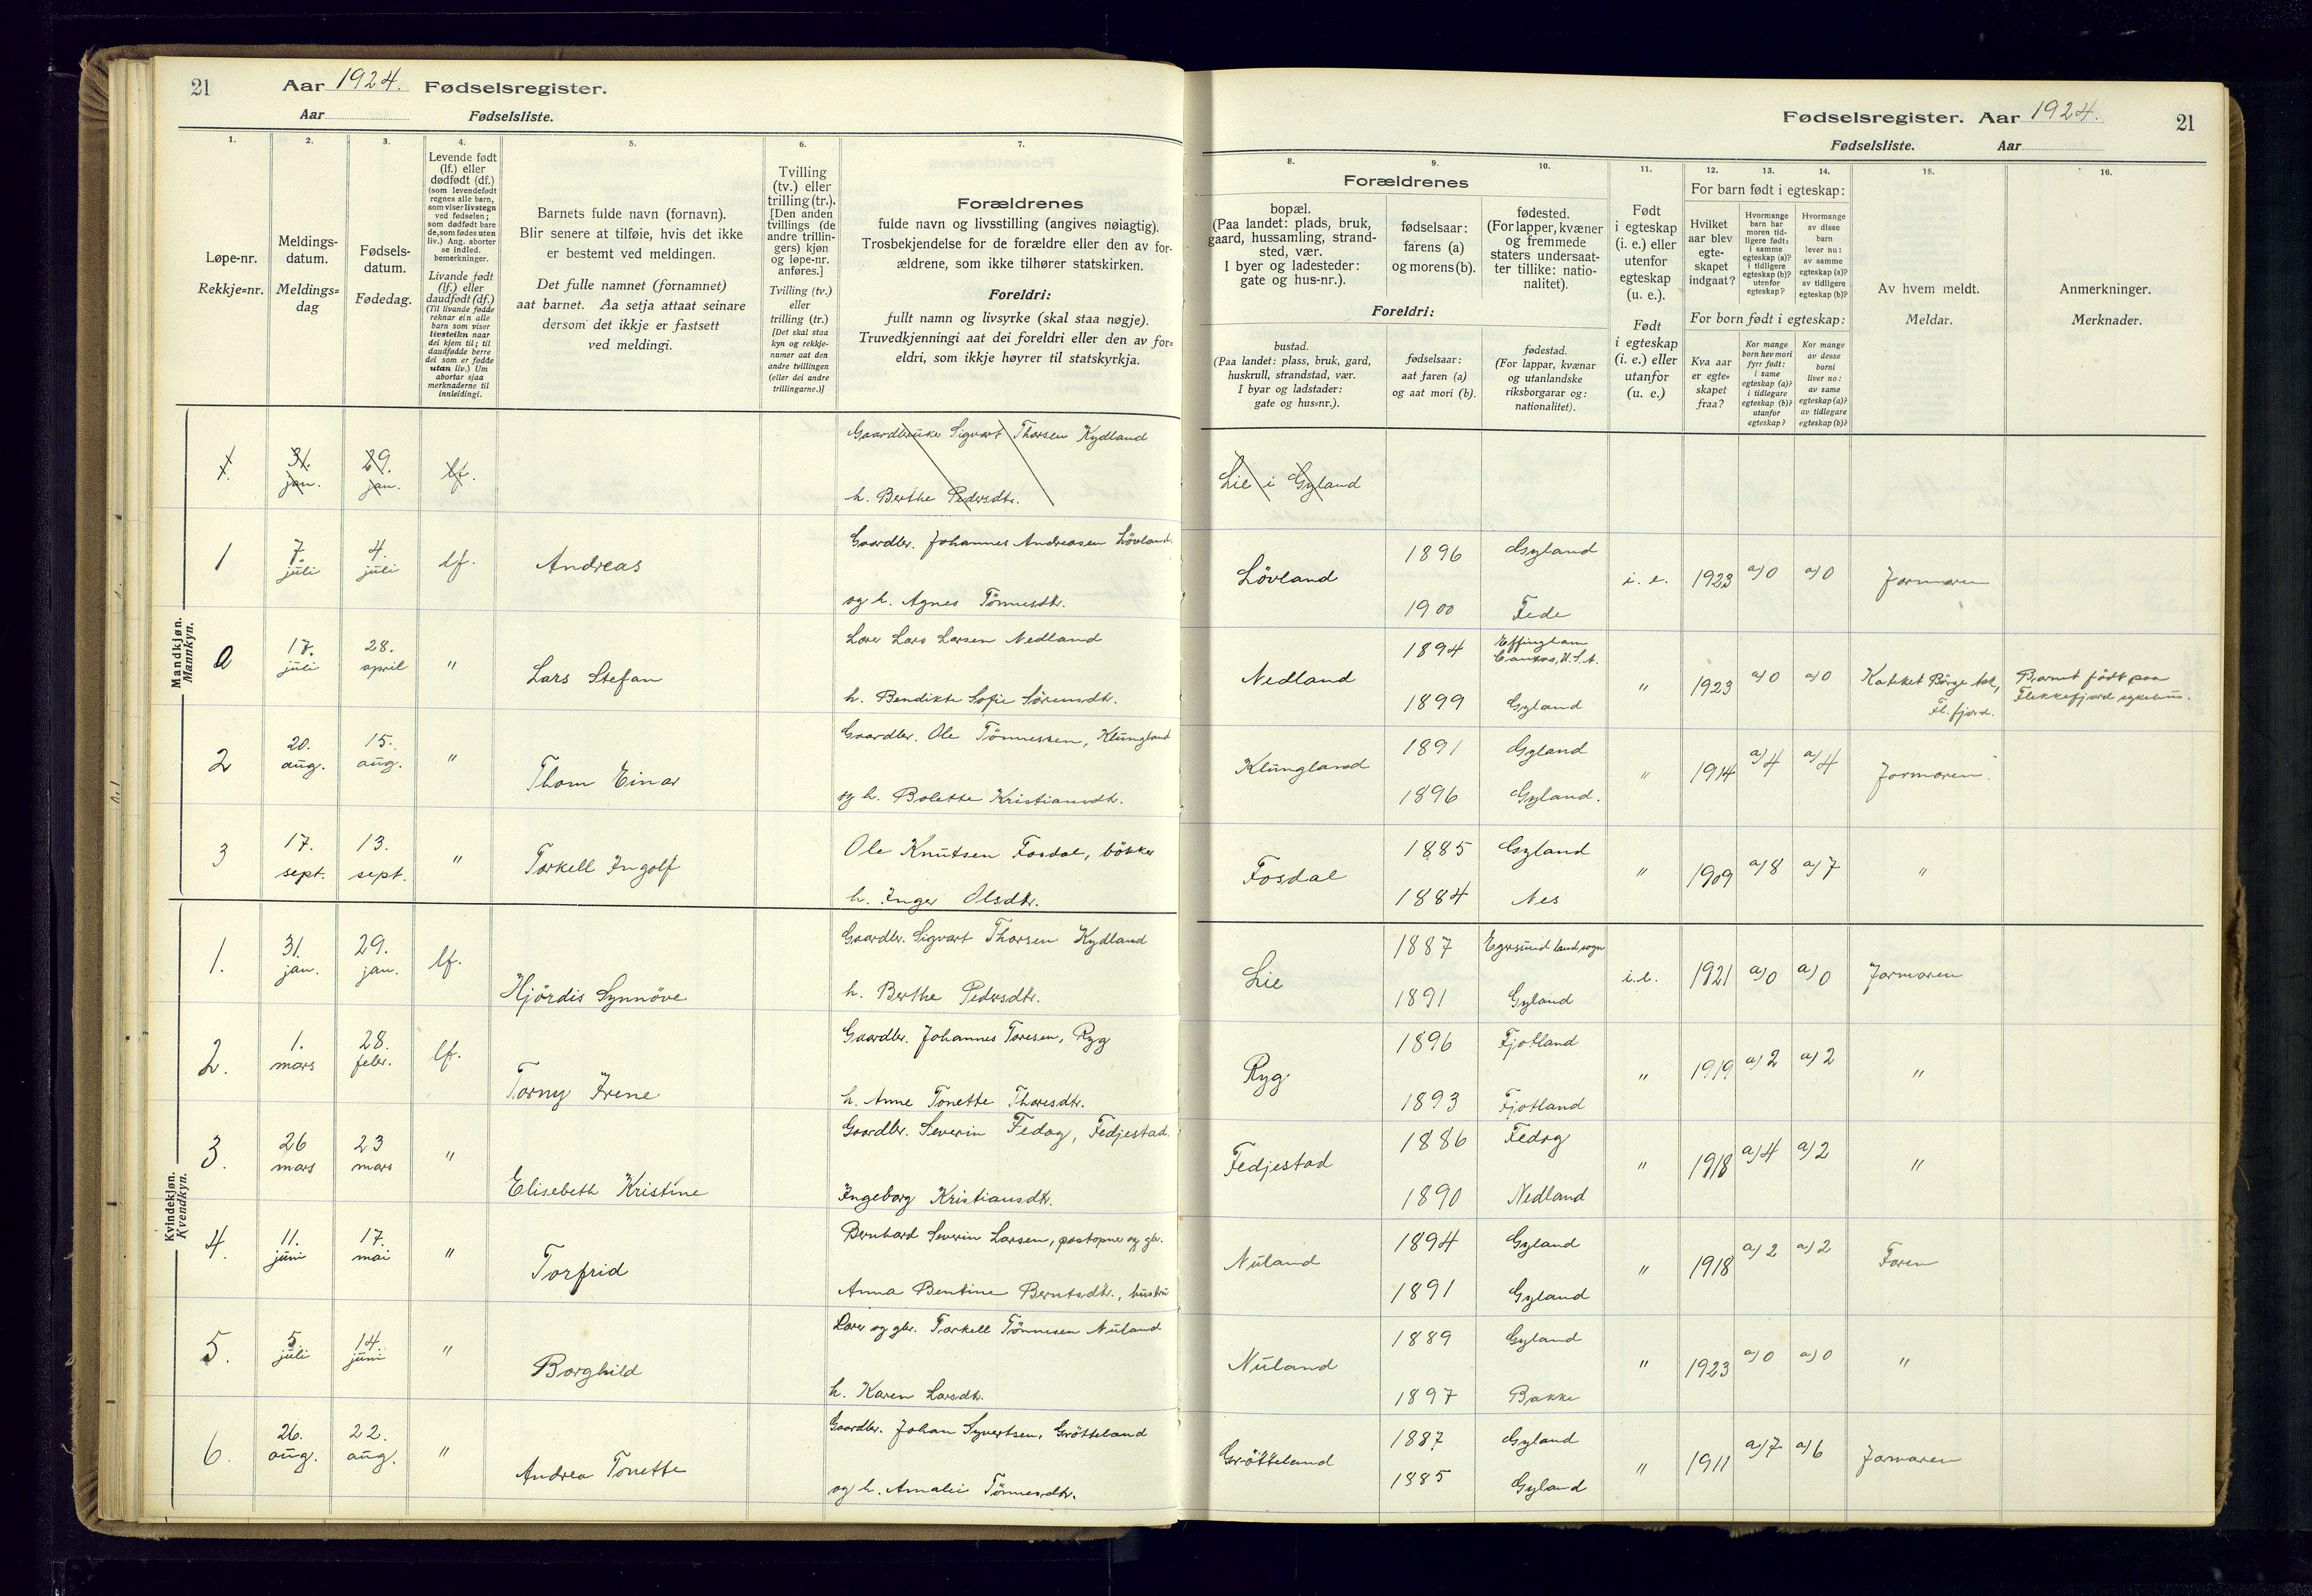 21
Aar 1924. Fødselsregister.
Aar Fødselsliste.
1. 2. 3. 4. 5. 6. 7.
Løpe-nr.
Rekkje=nr.
Meldings-
datum.
Meldings=
dag
Fødsels-
datum.
Fødedag.
Levende født
(lf.) eller
dødfødt (df.)
(som levendefødt
regnes alle barn,
som viser livstegn
ved fødselen;
som dødfødt bare
de, som fødes uten
liv.) Ang. aborter
se indled.
bemerkninger.
Livande født
(lf.) eller
daudfødt (df.)
(Til livande fødde
reknar ein alle
barn som viser
livsteikn naar
dei kjem til; til
daudfødde berre
dei som er fødde
utan liv.) Um
abortar sjaa
merknaderne til
innleidingi.
Barnets fulde navn (fornavn).
Blir senere at tilføie, hvis det ikke
er bestemt ved meldingen.
Det fulle namnet (fornamnet)
aat barnet. Aa setja attaat seinare
dersom det ikkje er fastsett
ved meldingi.
Tvilling
(tv.) eller
trilling (tr.).
[Den anden
tvillings (de
andre trillin-
gers) kjøn
og løpe-nr.
anføres.]
Tvilling (tv.)
eller
trilling (tr.)
[Det skal staa
kyn og rekkje-
numer aat den
andre tvillingen
(eller dei andre
trillingarne.)]
Forældrenes
fulde navn og livsstilling (angives nøiagtig).
Trosbekjendelse for de forældre eller den av for-
ældrene, som ikke tilhører statskirken.
Foreldri:
fullt namn og livsyrke (skal staa nøgje).
Truvedkjenningi aat dei foreldri eller den av for=
eldri, som ikkje høyrer til statskyrkja.
Mandkjøn.
Mannkyn.
1. 31. jan. 29. jan. lf. Gaardbruker Sigvart Thorsen Kydland
h. Berthe Pedersdtr.
1 7. juli 4. juli lf. Andreas Gaardbr. Johannes Andreasen Lövland.
og h. Agnes Tönnesdtr.
17. juli 28. april " Lars Stefan Lærer Lars Larsen Nedland
h. Bendikte Sofie Sörensdtr.
2 20. aug. 15. aug. " Thom Einar Gaardbr. Ole Tönnessen, Klungland
og h. Bolette Kristiansdtr.
3 17. sept. 13. sept. " Torkell Ingolf Ole Knutsen Fosdal, bökker
h. Inger Olsdtr.
Kvindekjøn.
Kvendkyn.
1. 31. jan. 29. jan. lf. Hjördis Synnöve Gaardbr. Sigvart Thorsen Kydland
h. Berthe Pedersdtr.
2. 1. mars 28. febr. lf. Torny Irene Gaardbr. Johannes Toresen, Ryg
h. Anne Tonette Thoresdtr.
3. 26 mars 23 mars " Elisebeth Kristine Gaardbr. Severin Fedog, Fedjestad.
Ingeborg Kristiansdtr.
4. 11. juni 17. mai " Torfrid Bernhard Severin Larsen, postopner og gbr.
Anna Bentine Berntsdtr., hustru
5. 5. juli 14. juni " Borghild Lærer og gbr. Torkell Tönnesen Nuland
h. Karen Larsdtr.
6. 26. aug. 22. aug. " Andrea Tonette Gaardbr. Johan Syvertsen, Grötteland
og h. Amalie Tönnesdtr.
Fødselsregister. Aar 1924.
21
Fødselsliste. Aar
8. 9. 10. 11. 12. 13. 14. 15. 16.
Forældrenes
bopæl.
(Paa landet: plads, bruk,
gaard, hussamling, strand-
sted, vær.
I byer og ladesteder:
gate og hus-nr.).
fødselsaar:
farens (a)
og morens (b).
fødested.
(For lapper, kvæner
og fremmede
staters undersaat-
ter tillike: natio-
nalitet).
Foreldri:
bustad.
(Paa landet: plass, bruk, gard,
huskrull, strandstad, vær.
I byar og ladstader:
gate og hus=nr.).
fødselsaar:
aat faren (a)
og aat mori (b).
fødestad.
(For lappar, kvænar
og utanlandske
riksborgarar og:
nationalitet).
Født
i egteskap
(i. e.) eller
utenfor
egteskap
(u. e.).
Født
i egteskap
(i. e.) eller
utanfor
(u. e.)
For barn født i egteskap:
Hvilket
aar blev
egte-
skapet
indgaat?
Hvormange
barn har
moren tid-
ligere født:
i samme
egteskap (a)?
i tidligere
egteskap (b)?
utenfor
egteskap?
Hvormange
av disse
barn
lever nu:
av samme
egteskap (a)?
av tidligere
egteskap (b)?
For born født i egteskap:
Kva aar
er egte=
skapet
fraa?
Kor mange
born hev mori
fyrr født:
i same
egteskap (a)?
i tidlegare
egteskap (b)?
utanfor
egteskap?
Kor mange
av desse
borni
liver no:
av same
egteskap (a)?
av tidlegare
egteskap (b)?
Av hvem meldt.
Meldar.
Anmerkninger.
Merknader.
Lie i Gyland
Lövland 1896 Gyland i. e. 1923 a) 0 a) 0 Jormoren
1900 Fede
Nedland 1894 Effingham U.S.A. " 1923 a) 0 a) 0 Barnet födt paa
1899 Gyland Fl.fjord. Flekkefjord sykehus.
Klungland 1891 Gyland " 1914 a) 4 a) 4 Jormoren.
1896 Gyland.
Fosdal 1885 Gyland " 1909 a) 8 a) 7 "
1884 Nes
Lie 1887 Egersund landsogn i.e. 1921 a) 0 a) 0 Jormoren
1891 Gyland
Ryg 1896 Fjotland " 1919 a) 2 a) 2 "
1893 Fjotland
Fedjestad 1886 Fedog " 1918 a) 4 a) 2 "
1890 Nedland
Nuland 1894 Gyland " 1918 a) 2 a) 2 Faren
1891 Gyland
Nuland 1889 Gyland " 1923 a) 0 a) 0 "
1897 Bakke
Grötteland 1887 Gyland " 1911 a) 7 a) 6 Jormoren
1885 Gyland